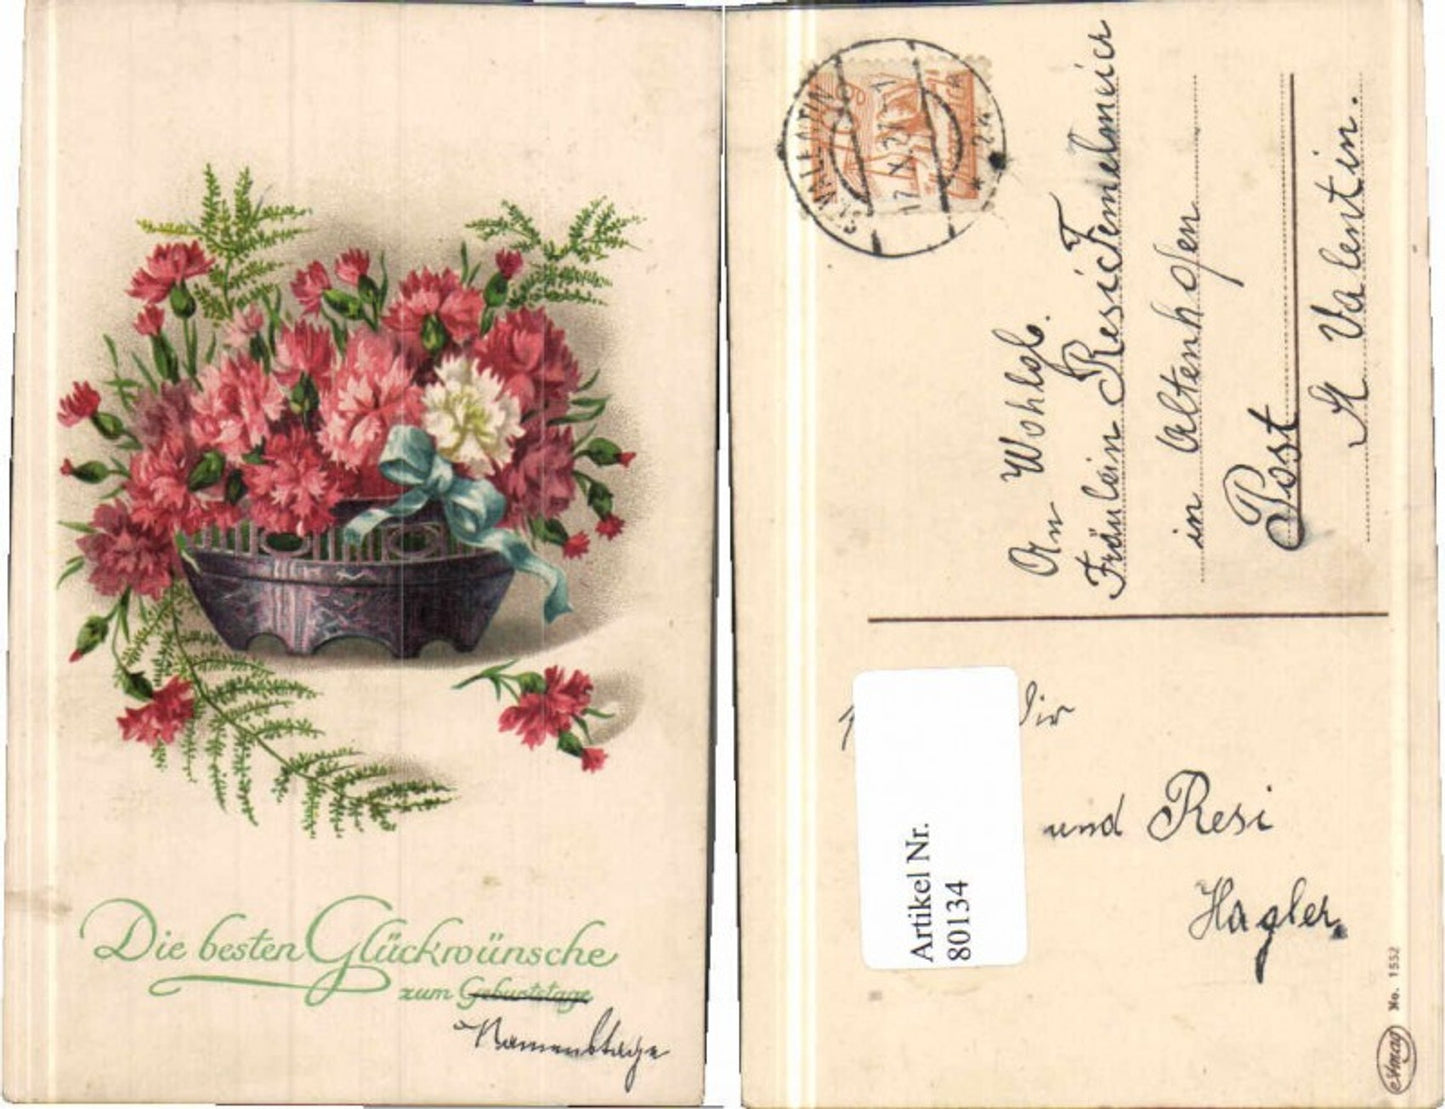 Die besten Glückwünsche
zum Geburtstage
Namenstage
ST. VALENTIN
17.X.27-1
2a
An Wohlgb.
Fräulein Resi Temelmeier
in Altenhofen
Post
St Valentin.
Dir
und Resi
Hagler
Artikel Nr.
80134
No. 1552